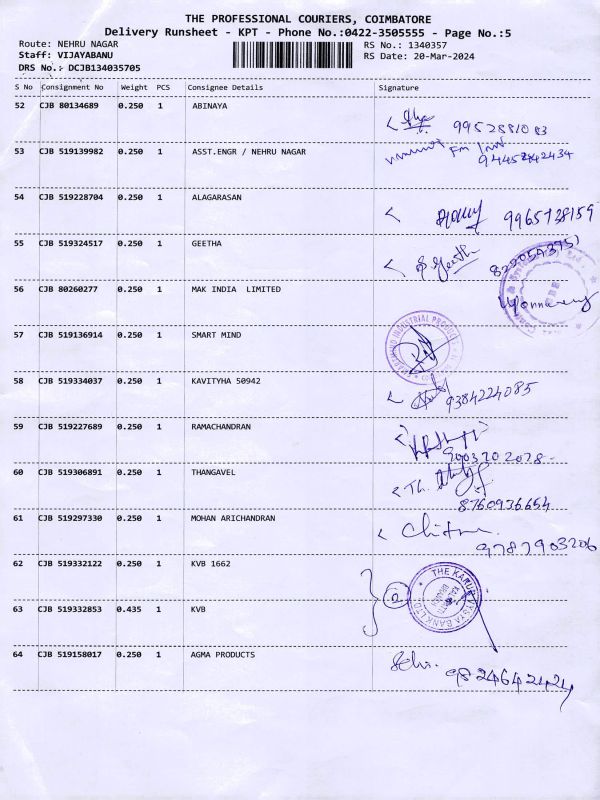 THE PROFESSIONAL COURIERS, COIMBATORE
Delivery Runsheet - KPT - Phone No.:0422-3505555 - Page No.:5
Route: NEHRU NAGAR RS No.: 1340357
Staff: VIJAYABANU RS Date: 20-Mar-2024
DRS No.: DCJB134035705
S No Consignment No Weight PCS Consignee Details Signature
52 CJB 80134689 0.250 1 ABINAYA
9952881083
53 CJB 519139982 0.250 1 ASST.ENGR / NEHRU NAGAR
9445242434
54 CJB 519228704 0.250 1 ALAGARASAN
9965738159
55 CJB 519324517 0.250 1 GEETHA
Geetha
56 CJB 80260277 0.250 1 MAK INDIA LIMITED
57 CJB 519136914 0.250 1 SMART MIND
58 CJB 519334037 0.250 1 KAVITYHA 50942
9384224085
59 CJB 519227689 0.250 1 RAMACHANDRAN
9003702078
60 CJB 519306891 0.250 1 THANGAVEL
Th.
8760936654
61 CJB 519297330 0.250 1 MOHAN ARICHANDRAN
9787903206
62 CJB 519332122 0.250 1 KVB 1662
2
THE KARUR VYSYA BANK LTD
63 CJB 519332853 0.435 1 KVB
64 CJB 519158017 0.250 1 AGMA PRODUCTS
9824642424